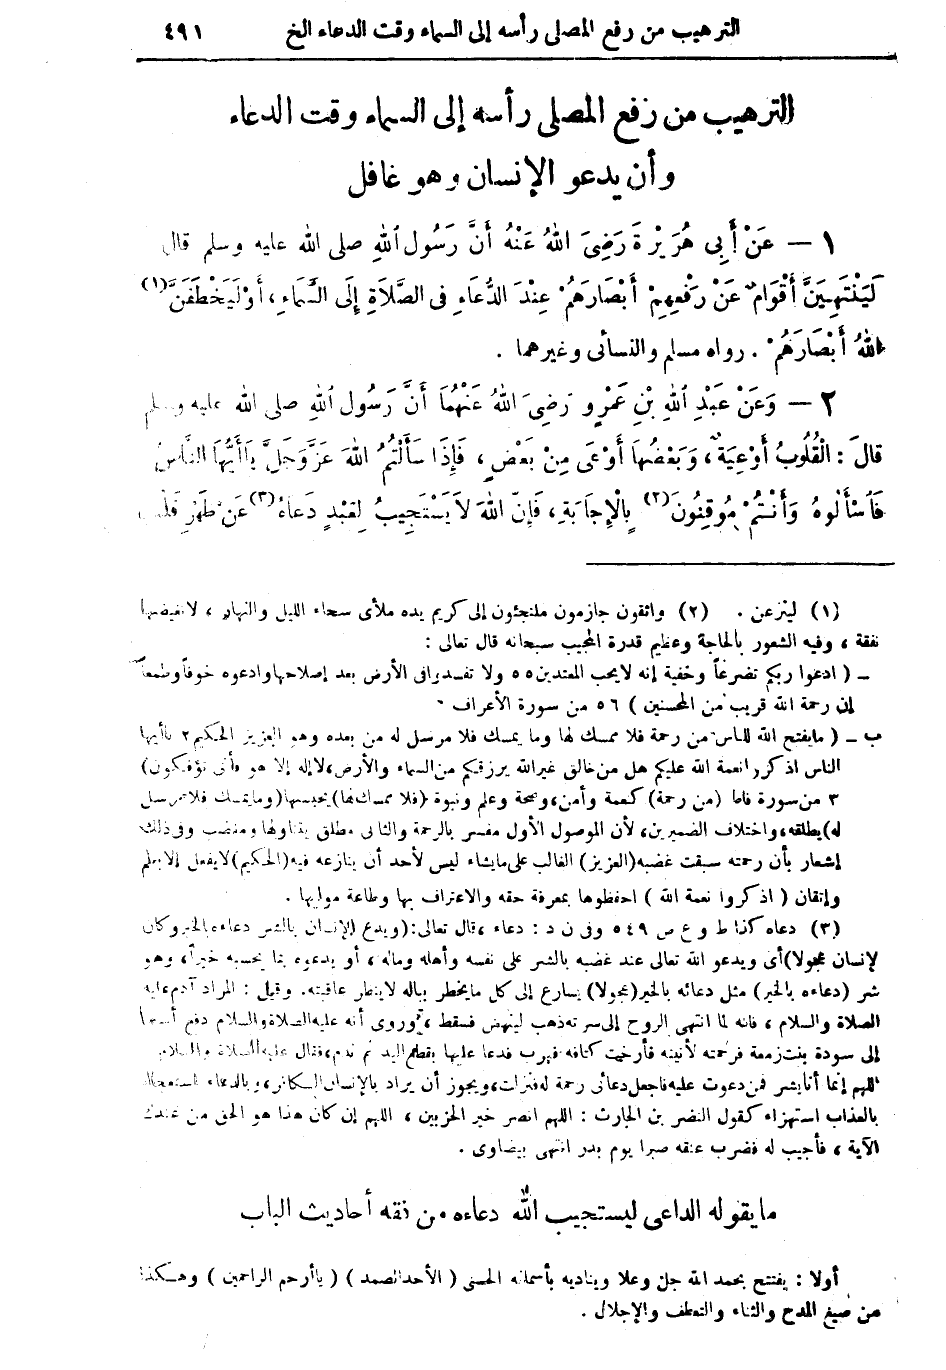 الترهيب من رفع المصلى رأسه إلى السماء وقت الدعاء الخ ٤٩١
الترهيب من رفع المصلى رأسه إلى السماء وقت الدعاء
وأن يدعو الإنسان وهو غافل
١ — عَنْ أَبِى هُرَيْرَةَ رَضِىَ اللهُ عَنْهُ أَنَّ رَسُولَ اللهِ صلى الله عليه وسلم قال
لَيَنْتَهِيَنَّ أَقْوَامٌ عَنْ رَفْعِهِمْ أَبْصَارَهُمْ عِنْدَ الدُّعَاءِ فى الصَّلاَةِ إِلَى السَّمَاءِ، أَوْ لَيَخْطَفَنَّ (١)
اللهُ أَبْصَارَهُمْ . رواه مسلم والنسائى وغيرهما .
٢ — وَعَنْ عَبْدِ اللهِ بْنِ عَمْرٍو رَضِىَ اللهُ عَنْهُمَا أَنَّ رَسُولَ اللهِ صلى الله عليه وسلم
قالَ : الْقُلُوبُ أَوْعِيَةٌ، وَبَعْضُهَا أَوْعَى مِنْ بَعْضٍ، فَإِذَا سَأَلْتُمُ اللهَ عَزَّ وَجَلَّ يَاأَيُّهَا النَّاسُ
فَاسْأَلُوهُ وَأَنْتُمْ مُوقِنُونَ (٢) بِالْإِجَابَةِ، فَإِنَّ اللهَ لاَ يَسْتَجِيبُ لِعَبْدٍ دَعَاهُ (٣) عَنْ ظَهْرِ قَلْبٍ
(١) لينزعن . (٢) واثقون جازمون ملتجئون إلى كريم يده ملأى سحاء الليل والنهار ، لاتغيضها
نفقة ، وفيه الشعور بالحاجة وعظيم قدرة المجيب سبحانه قال تعالى :
ـ ( ادعوا ربكم تضرعاً وخفية إنه لايحب المعتدين ٥٥ ولا تفسدوا فى الأرض بعد إصلاحها وادعوه خوفاً وطمعاً
إن رحمة الله قريب من المحسنين ) ٥٦ من سورة الأعراف .
ب ـ ( مايفتح الله للناس من رحمة فلا ممسك لها وما يمسك فلا مرسل له من بعده وهو العزيز الحكيم ٢ ياأيها
الناس اذكروا نعمة الله عليكم هل من خالق غير الله يرزقكم من السماء والأرض، لا إله إلا هو فأنى تؤفكون)
٣ من سورة فاطر (من رحمة) كنعمة وأمن، وصحة وعلم ونبوة (فلا ممسك لها) يحبسها (وما يمسك فلا مرسل
له) يطلقه، واختلاف الضميرين، لأن الموصول الأول مفسر بالرحمة والثانى مطلق يتناولها وغضب وفى ذلك
إشعار بأن رحمته سبقت غضبه (العزيز) الغالب على مايشاء ليس لأحد أن ينازعه فيه (الحكيم) لايفعل إلا بعلم
وإتقان ( اذكروا نعمة الله ) احفظوها بمعرفة حقه والاعتراف بها وطاعة موليها .
(٣) دعاه كذا ط و ع ص ٥٤٩ وفى ن د : دعاء ، قال تعالى: (ويدع الإنسان بالشر دعاءه بالخير وكان
لإنسان عجولا) أى ويدعو الله تعالى عند غضبه بالشر على نفسه وأهله وماله ، أو يدعوه بما يحسبه خيراً، وهو
شر (دعاءه بالخير) مثل دعائه بالخير (عجولا) يسارع إلى كل مايخطر بباله لاينظر عاقبته. وقيل : المراد آدم عليه
الصلاة والسلام ، فانه لما انتهى الروح إلى سرته ذهب لينهض فسقط ، وروى أنه عليه الصلاة والسلام دفع أسيراً
إلى سودة بنت زمعة فرحمته لأنينه فأرخت كتافه فهرب فدعا عليها بقطع اليد ثم ندم، فقال عليه الصلاة والسلام
اللهم إنما أنا بشر فمن دعوت عليه فاجعل دعائى رحمة له فنزلت، ويجوز أن يراد بالإنسان الكافر، وبالدعاء استعجاله
بالعذاب استهزاء كقول النضر بن الحارث : اللهم انصر خير الحزبين ، اللهم إن كان هذا هو الحق من عندك
الآية ، فأجيب له فضرب عنقه صبرا يوم بدر انتهى بيضاوى .
مايقوله الداعى ليستجيب الله دعاءه من فقه أحاديث الباب
أولا : يفتتح بحمد الله جل وعلا ويناديه بأسمائه الحسنى ( الأحد الصمد ) ( ياأرحم الراحمين ) وهكذا
من صيغ المدح والثناء والتعطف والإجلال .